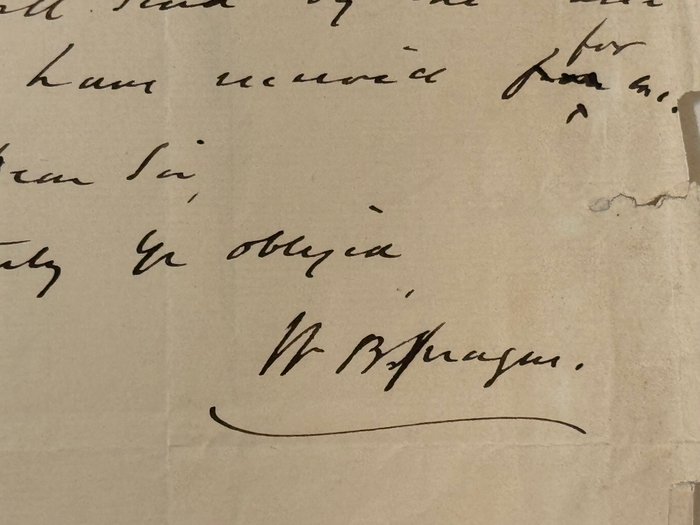 by the
have received for me.
Dear Sir,
truly Yr obliged
W B Sprague.